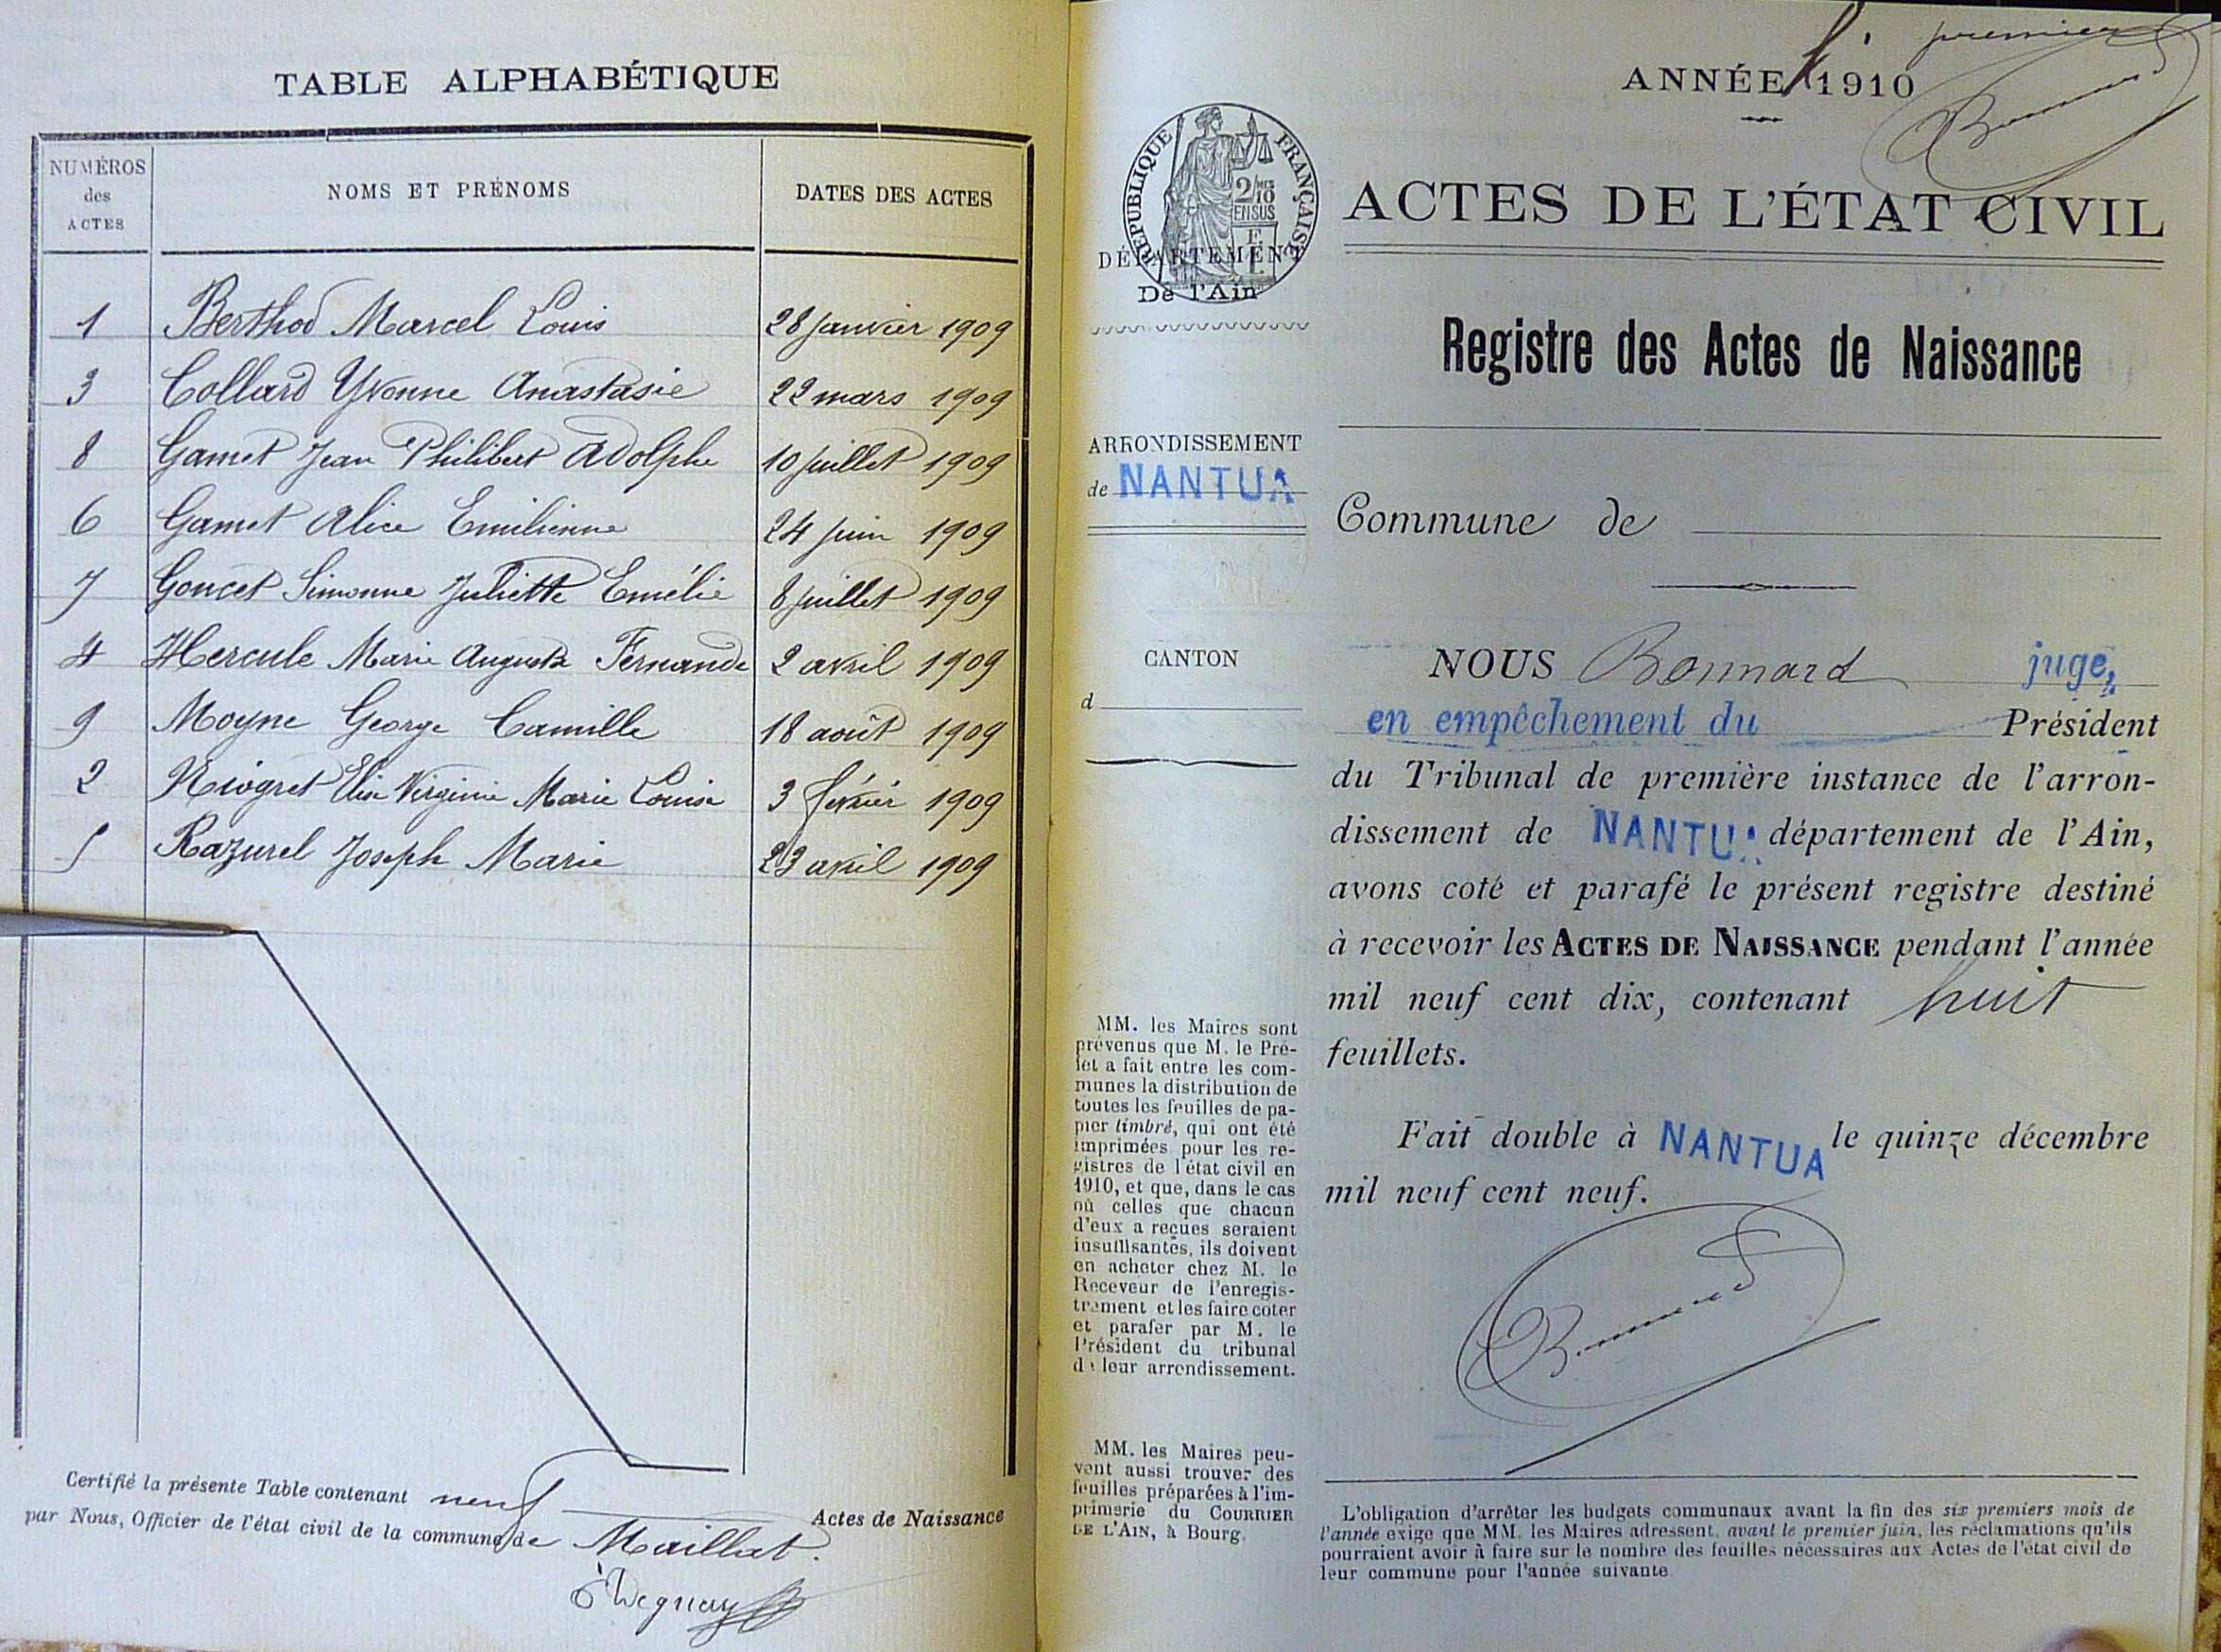 TABLE ALPHABÉTIQUE
NUMÉROS des ACTES NOMS ET PRÉNOMS DATES DES ACTES
1 Berthod Marcel Louis 28 janvier 1909
3 Collard Yvonne Anastasie 22 mars 1909
8 Gamet Jean Philibert Adolphe 10 juillet 1909
6 Gamet Alice Emilienne 24 juin 1909
7 Goncet Simonne Juliette Emélie 8 juillet 1909
4 Hercule Marie Augusta Fernande 2 avril 1909
9 Moyne George Camille 18 août 1909
2 Niogret Elise Virginie Marie Louise 3 février 1909
5 Razurel Joseph Marie 23 avril 1909
Certifié la présente Table contenant neuf Actes de Naissance
par Nous, Officier de l'état civil de la commune de Maillat.
premier
ANNÉE 1910
RÉPUBLIQUE FRANÇAISE
2/10
EN SUS
ACTES DE L'ÉTAT CIVIL
DÉPARTEMENT
De l'Ain
Registre des Actes de Naissance
ARRONDISSEMENT
de NANTUA
Commune de
CANTON
d
NOUS Bonnard juge,
en empêchement du Président
du Tribunal de première instance de l'arron-
dissement de NANTUA département de l'Ain,
avons coté et parafé le présent registre destiné
à recevoir les ACTES DE NAISSANCE pendant l'année
mil neuf cent dix, contenant huit
feuillets.
Fait double à NANTUA le quinze décembre
mil neuf cent neuf.
MM. les Maires sont
prévenus que M. le Pré-
fet a fait entre les com-
munes la distribution de
toutes les feuilles de pa-
pier timbré, qui ont été
imprimées pour les re-
gistres de l'état civil en
1910, et que, dans le cas
où celles que chacun
d'eux a reçues seraient
insuffisantes, ils doivent
en acheter chez M. le
Receveur de l'enregis-
trement et les faire coter
et parafer par M. le
Président du tribunal
de leur arrondissement.
MM. les Maires peu-
vent aussi trouver des
feuilles préparées à l'im-
primerie du COURRIER
DE L'AIN, à Bourg.
L'obligation d'arrêter les budgets communaux avant la fin des six premiers mois de
l'année exige que MM. les Maires adressent, avant le premier juin, les réclamations qu'ils
pourraient avoir à faire sur le nombre des feuilles nécessaires aux Actes de l'état civil de
leur commune pour l'année suivante.